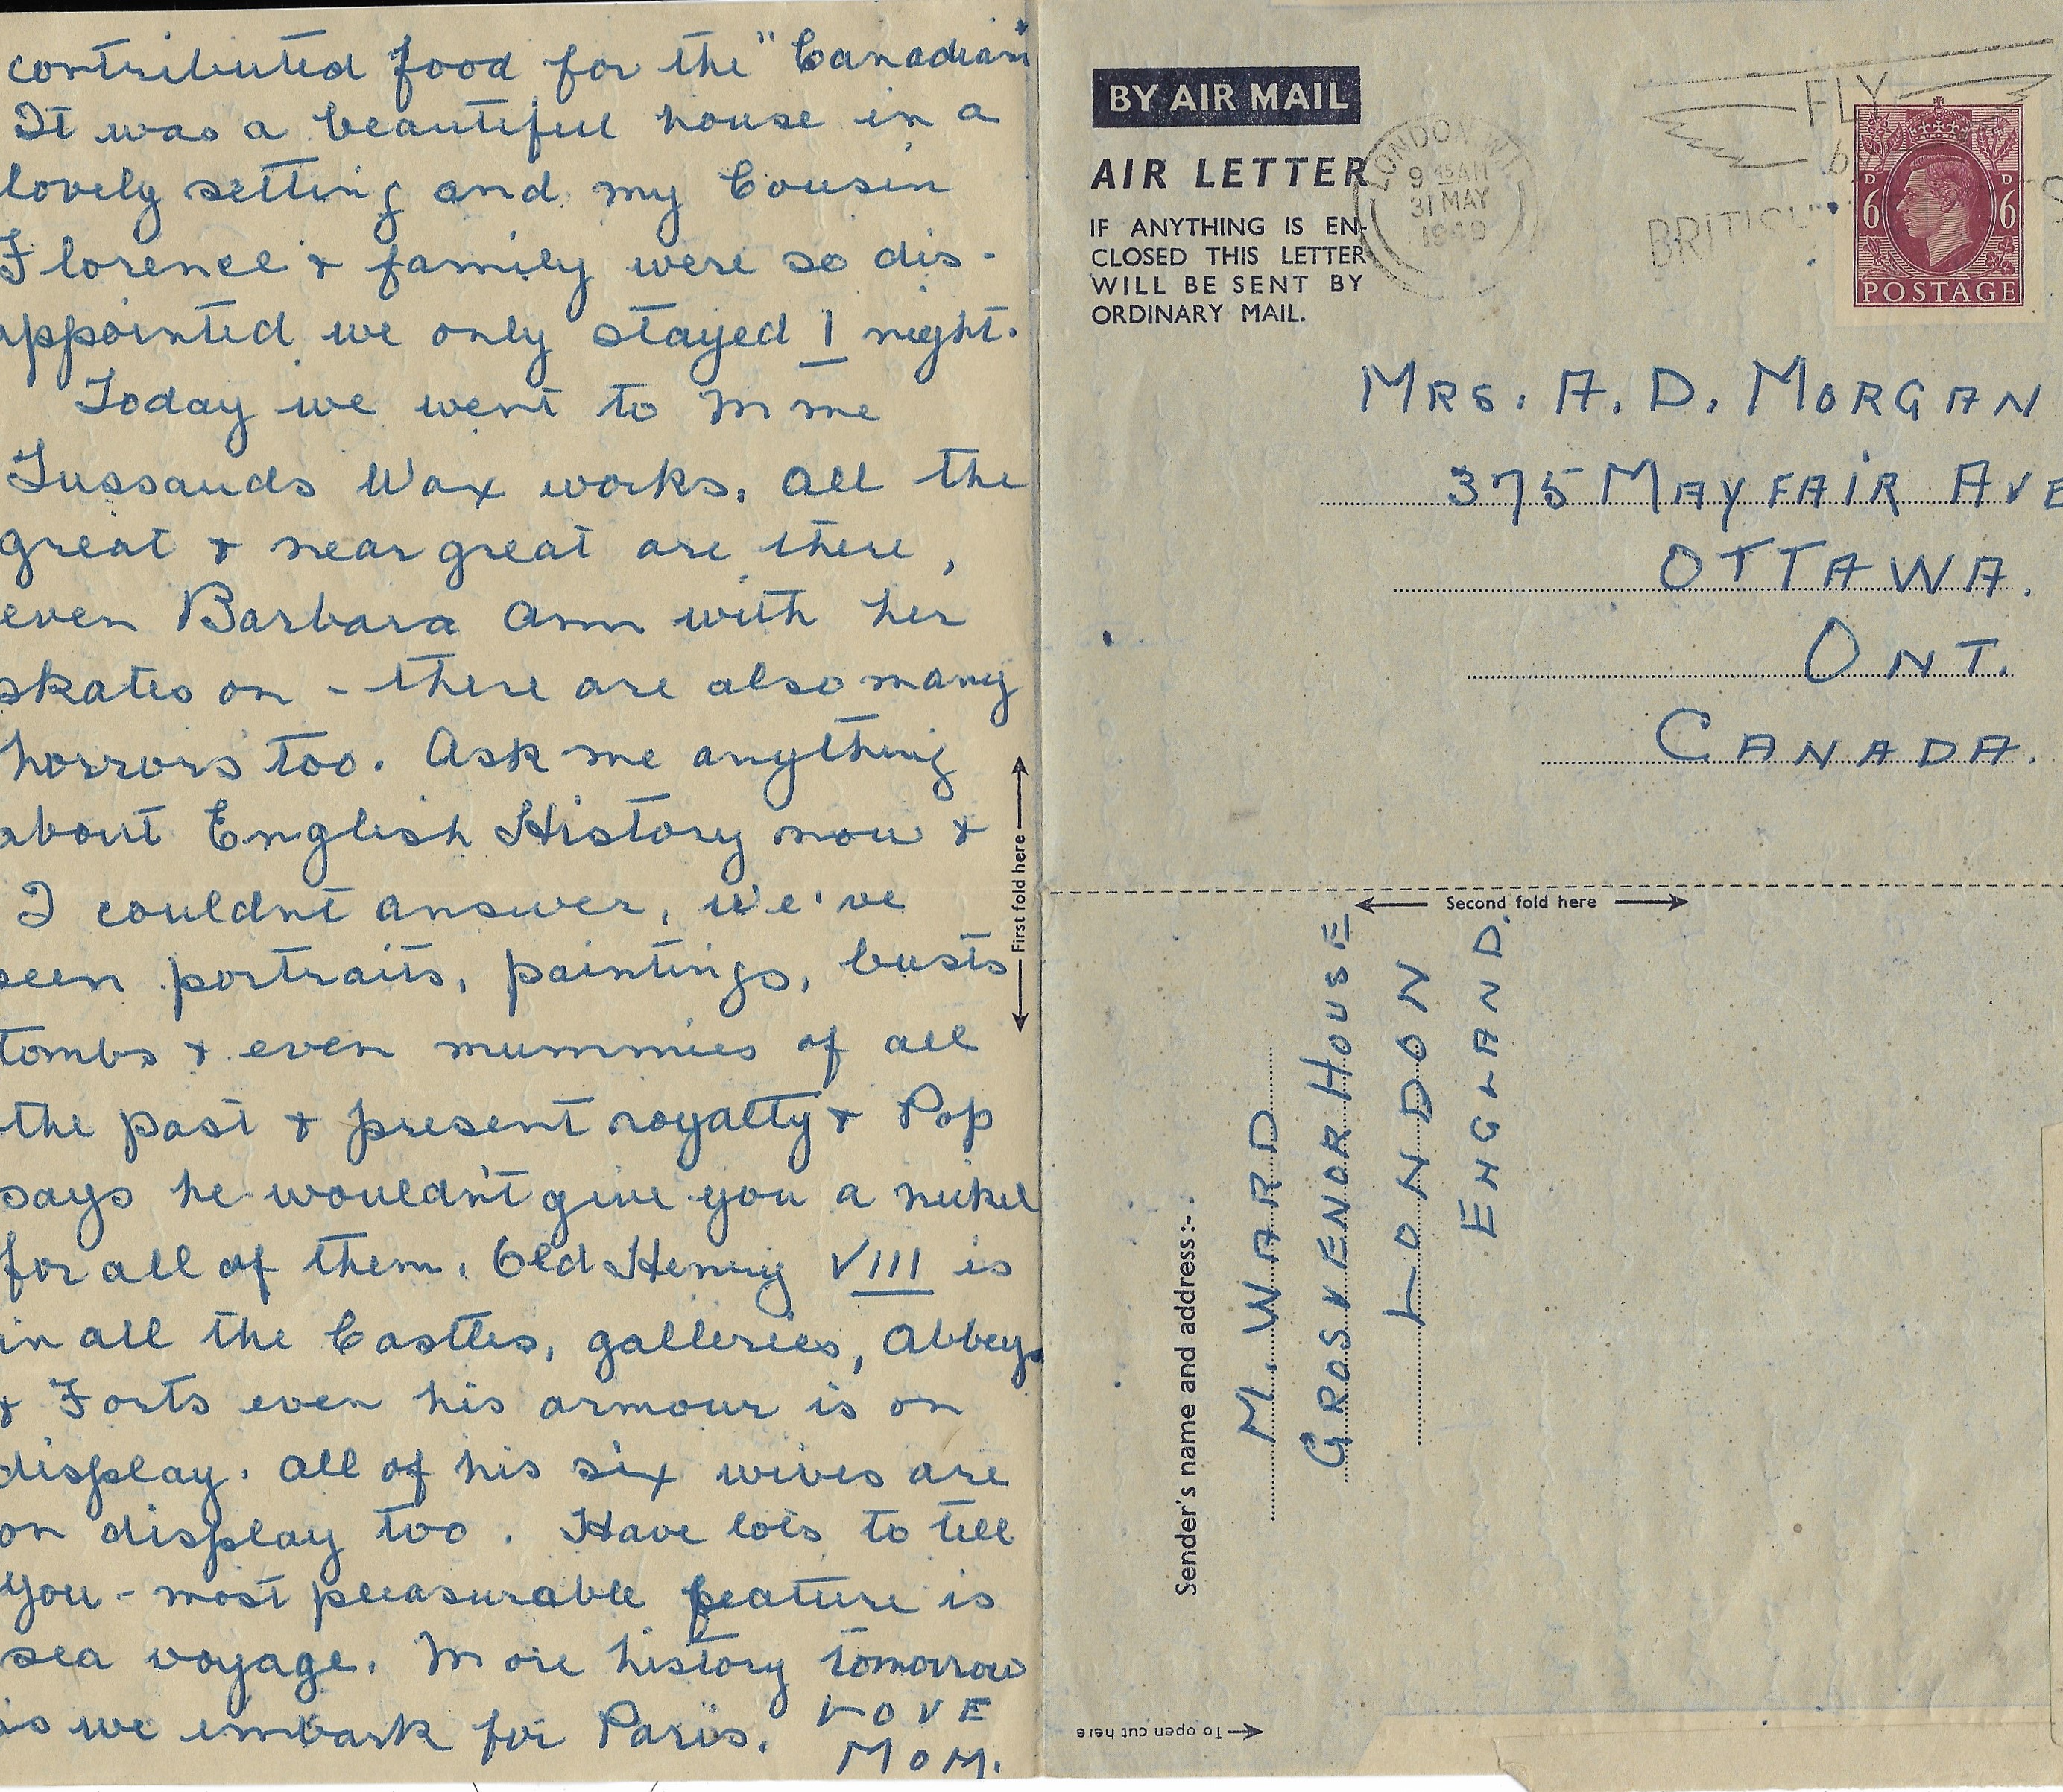 contributed food for the "Canadians"
It was a beautiful house in a
lovely setting and my Cousin
Florence & family were so dis-
appointed we only stayed 1 night.
Today we went to Mme
Tussauds Wax works. All the
great & near great are there,
even Barbara Ann with her
skates on - there are also many
horrors too. Ask me anything
about English History now &
I couldnt answer, we've
seen portraits, paintings, busts
tombs & even mummies of all
the past & present royalty & Pop
says he wouldn't give you a nickel
for all of them. Old Henry VIII is
in all the Castles, galleries, Abbeys
& Forts even his armour is on
display. All of his six wives are
on display too. Have lots to tell
you - most pleasurable feature is
sea voyage. More history tomorrow
as we embark for Paris. LOVE
MOM.
First fold here
BY AIR MAIL
AIR LETTER
IF ANYTHING IS EN-
CLOSED THIS LETTER
WILL BE SENT BY
ORDINARY MAIL.
LONDON W.1.
9 45AM
31 MAY
1949
FLY
by
BRITISH
D D
6 6
POSTAGE
MRS. A. D. MORGAN
375 MAYFAIR AVE
OTTAWA.
ONT.
CANADA.
Second fold here
Sender's name and address:-
M. WARD
GROSVENOR HOUSE
LONDON
ENGLAND.
To open cut here